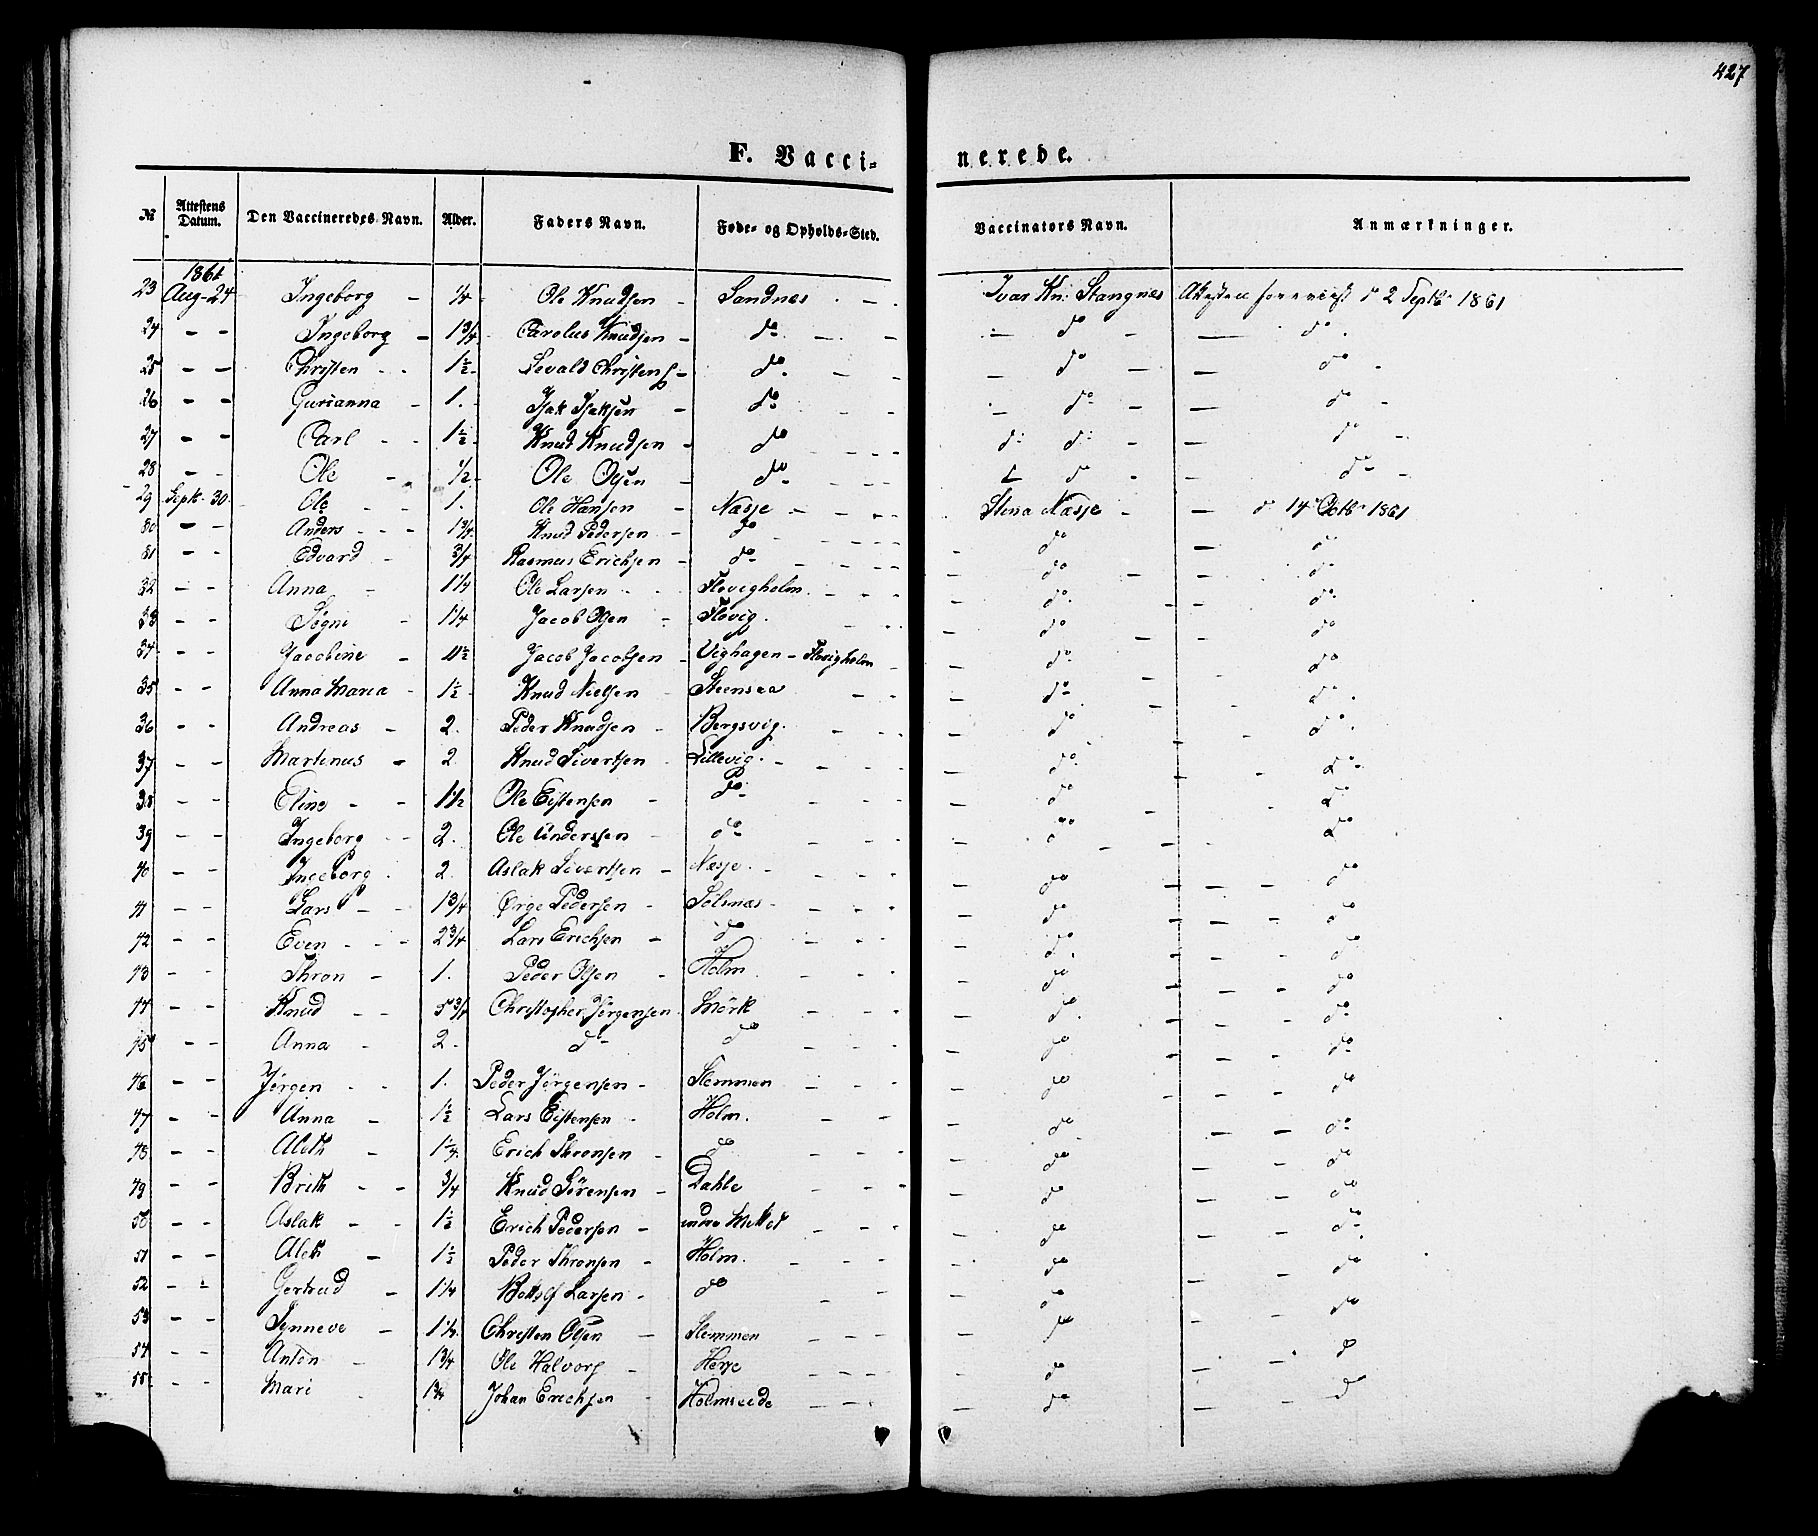 427
F. Vacci- nerede.
№ Attestens Datum. Den Vaccineredes Navn. Alder. Faders Navn. Føde- og Opholds-Sted. Vaccinators Navn. Anmærkninger.
1861
23 Aug. 24 Ingeborg - 1/4 - Ole Knudsen - Sandnes - Ivar Kn: Stangnes Attesten foreviist d 2 Septbr 1861
24 - - Ingeborg - 1 3/4 Carolus Knudsen - do - - do - - do
25 - - Christen - - 1 1/2 Sevald Christens - do - - do - - do
26 - - Gurianna - 1. Isak Isaksen - do - - do - - do -
27 - - Carl - - 1 1/2 Knud Knudsen - do - - do do - - do -
28 - - Ole - 1/2 - Ole Olsen - do - - do - - do -
29 Septb. 30 Ole - - 1. Ole Hansen - Næsje - - Stina Næsje - - d 14 Octbr 1861
30 - - Anders - - 1 3/4 Knud Pedersen - do - - do - do
31 - - Edvard - 3/4 Rasmus Erichsen - do - - do - do
32 - - Anna - 1 1/4 Ole Larsen - Flovigholm - - do - - do
33 - - Signi - 1 1/4 Jacob Olsen - Flovig. - - do - - do
34 - - Jacobine - 1 1/2 Jacob Jacobsen - Vighagen - Flovigholm - do - - do
35 - - Anna Maria - 1 1/2 Knud Nielsen - Steensaa - - do - - do
36 - - Andreas - 2. Peder Knudsen - Bergsvig. - - do - do
37 - - Martinus - 2. Knud Sivertsen - Lillevig. - - do - - do
38 - - Eline - - 1 1/2 Ole Eistensen - do - - do - do
39 - - Ingeborg - - 2. Ole Anderssen - do - - do - - do
40 - - Ingeborg . 2. Aslak Sivertsen - Næsje. - - do - - - do
41 - - Lars - - 1 3/4 Ørge Pedersen - Sølsnæs - - do - - - do
42 - - Even - - - 2 3/4 Lars Erichsen - do - - do - - do
43 - - Thron - 1. Peder Olsen - Holm. - - do - - - do
44 - - Knud - - 5 3/4 Christopher Jørgensen Mörk - - do - - - do
45 - - Anna - 2. do do - - do - - - do
46 - - Jørgen - - 1. Peder Jørgensen - Flemmen - - do - - - do
47 - - Anna - 1 1/2 Lars Eistensen - Holm. - - do - - - do
48 - - Aleth - 1 1/4 Erich Thronsen - do - - do - - - do
49 - - Brith - - 3/4 Knud Sørensen - Dahle - - do - - - do
50 - - Aslak - - 1 1/2 Erich Pedersen - - - do - - - do
51 - - Aleth - 1 1/2 Peder Thronsen - Holm. - - do - - do
52 - - Gertrud - 1 1/4 Larsen - do - - do - - do
53 - - Synneve - Christen Olsen - Flemmen - - do - do
54 - - Anton - 1 3/4 Ole Halvors - Herje - - do - - do
55 - - Mari - 1 3/4 Johan Erichsen - - - do - - do